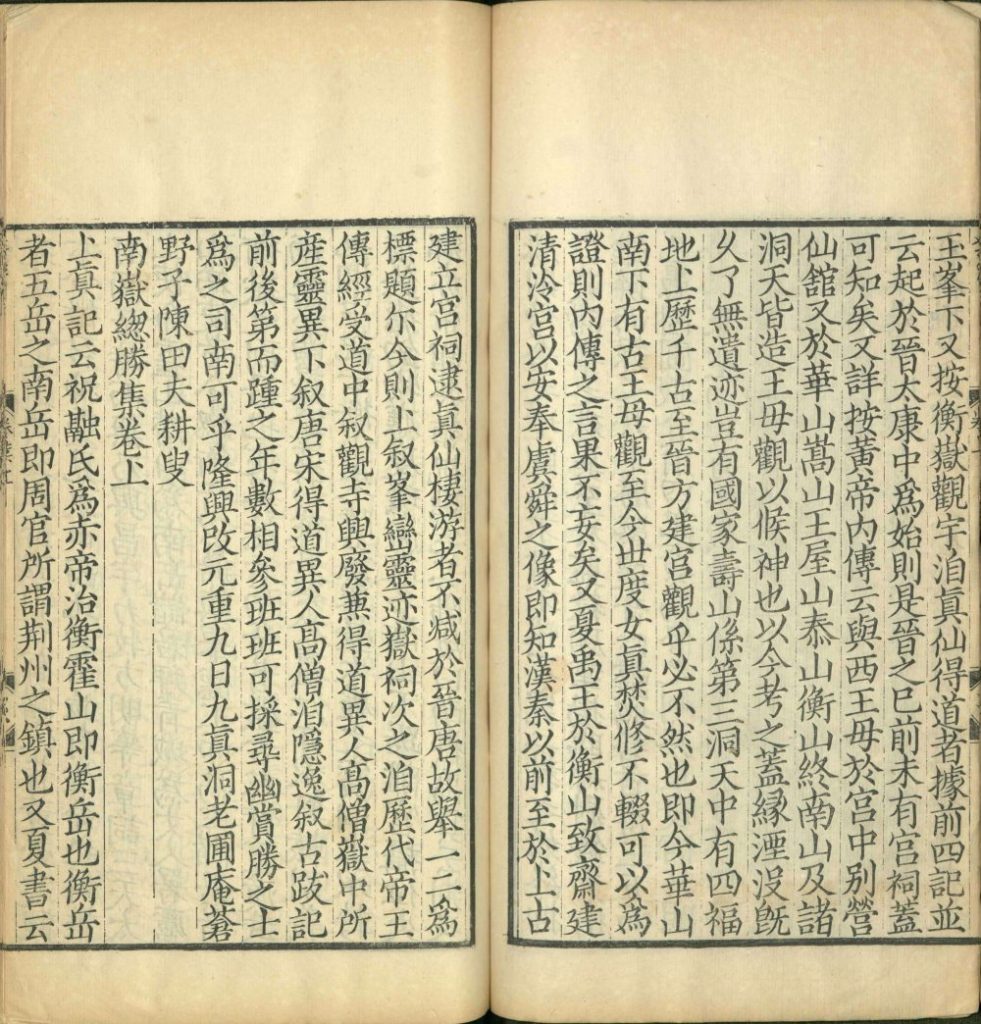 玉峯下又按衡嶽觀宇洎眞仙得道者據前四記並
云起於晉太康中爲始則是晉之巳前未有宫祠蓋
可知矣又詳按黃帝内傳云與西王母於宫中别營
仙舘又於華山嵩山王屋山泰山衡山終南山及諸
洞天皆造王母觀以候神也以今考之蓋縁湮没旣
乆了無遺迹豈有國家壽山係第三洞天中有四福
地上歷千古至晉方建宫觀乎必不然也即今華山
南下有古王母觀至今丗度女真焚修不輟可以爲
證則内傳之言果不妄矣又夏禹王於衡山致齋建
清泠宫以安奉虞舜之像即知漢秦以前至於上古
建立宫祠逮眞仙棲游者不减於晉唐故舉一二爲
標題尓今則上叙峯巒靈迹嶽祠次之洎歷代帝王
傳經受道中叙觀寺興廢兼得道異人高僧嶽中所
産靈異下叙唐宋得道異人高僧洎隱逸叙古跋記
前後第而踵之年數相參班班可採尋幽賞勝之士
爲之司南可乎隆興改元重九日九眞洞老圃庵蒼
野子陳田夫耕叟
南嶽緫勝集卷上
上真記云祝融氏爲赤帝治衡霍山即衡岳也衡岳
者五岳之南岳即周官所謂荆州之鎮也又夏書云